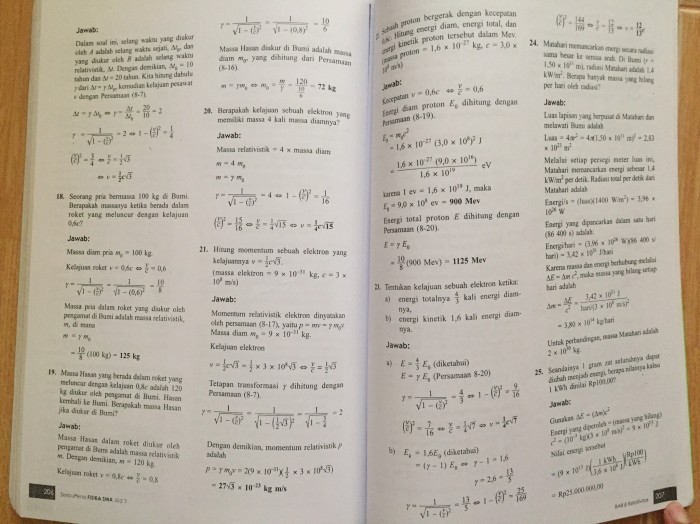 Jawab:
Dalam soal ini, selang waktu yang diukur
oleh A adalah selang waktu sejati, Δt₀, dan
yang diukur oleh B adalah selang waktu
relativistik, Δt. Dengan demikian, Δt₀ = 10
tahun dan Δt = 20 tahun. Kita hitung dahulu
γ dari Δt = γ Δt₀, kemudian kelajuan pesawat
v dengan Persamaan (8-7).
Δt = γ Δt₀ ⇔ γ = Δt/Δt₀ = 20/10 = 2
γ = 1/√(1 − (v/c)²) = 2 ⇔ 1 − (v/c)² = 1/4
(v/c)² = 3/4 ⇔ v/c = 1/2√3
⇔ v = 1/2 c√3
18. Seorang pria bermassa 100 kg di Bumi.
Berapakah massanya ketika berada dalam
roket yang meluncur dengan kelajuan
0,6c?
Jawab:
Massa diam pria m₀ = 100 kg.
Kelajuan roket v = 0,6c ⇔ v/c = 0,6
γ = 1/√(1 − (v/c)²) = 1/√(1 − (0,6)²) = 10/8
Massa pria dalam roket yang diukur oleh
pengamat di Bumi adalah massa relativistik,
m, di mana
m = γ m₀
= 10/8 (100 kg) = 125 kg
19. Massa Hasan yang berada dalam roket yang
meluncur dengan kelajuan 0,8c adalah 120
kg diukur oleh pengamat di Bumi. Hasan
kembali ke Bumi. Berapakah massa Hasan
jika diukur di Bumi?
Jawab:
Massa Hasan dalam roket diukur oleh
pengamat di Bumi adalah massa relativistik
m. Dengan demikian, m = 120 kg.
Kelajuan roket v = 0,8c ⇔ v/c = 0,8
206
γ = 1/√(1 − (v/c)²) = 1/√(1 − (0,8)²) = 10/6
Massa Hasan diukur di Bumi adalah massa
diam m₀, yang dihitung dari Persamaan
(8-16).
m = γm₀ ⇔ m₀ = m/γ = 120/(10/6) = 72 kg
20. Berapakah kelajuan sebuah elektron yang
memiliki massa 4 kali massa diamnya?
Jawab:
Massa relativistik = 4 × massa diam
m = 4 m₀
m = γ m₀
γ = 1/√(1 − (v/c)²) = 4 ⇔ 1 − (v/c)² = 1/16
(v/c)² = 15/16 ⇔ v/c = 1/4√15 ⇔ v = 1/4 c√15
21. Hitung momentum sebuah elektron yang
kelajuannya v = 1/2 c√3.
(massa elektron = 9 × 10⁻³¹ kg, c = 3 ×
10⁸ m/s)
Jawab:
Momentum relativistik elektron dinyatakan
oleh persamaan (8-17), yaitu p = mv = γ m₀v
Massa diam m₀ = 9 × 10⁻³¹ kg.
Kelajuan elektron
v = 1/2 c√3 = 1/2 × 3 × 10⁸√3 ⇔ v/c = 1/2√3
Tetapan transformasi γ dihitung dengan
Persamaan (8-7).
γ = 1/√(1 − (v/c)²) = 1/√(1 − (1/2√3)²) = 1/√(1 − 3/4) = 2
Dengan demikian, momentum relativistik p
adalah
p = γ m₀v = 2(9 × 10⁻³¹)(1/2 × 3 × 10⁸√3)
= 27√3 × 10⁻²³ kg m/s
proton bergerak dengan kecepatan
Hitung energi diam, energi total, dan
energi kinetik proton tersebut dalam Mev.
proton = 1,6 × 10⁻²⁷ kg, c = 3,0 ×
10⁸ m/s)
Jawab:
Kecepatan v = 0,6c ⇔ v/c = 0,6
Energi diam proton E₀ dihitung dengan
Persamaan (8-19).
E₀ = m₀c²
= 1,6 × 10⁻²⁷ (3,0 × 10⁸)² J
= 1,6 × 10⁻²⁷ (9,0 × 10¹⁶)/1,6 × 10¹⁹ eV
karena 1 ev = 1,6 × 10¹⁹ J, maka
E₀ = 9,0 × 10⁸ ev = 900 Mev
Energi total proton E dihitung dengan
Persamaan (8-20).
E = γ E₀
= 10/8 (900 Mev) = 1125 Mev
Tentukan kelajuan sebuah elektron ketika:
a) energi totalnya 4/3 kali energi diam-
nya,
b) energi kinetik 1,6 kali energi diam-
nya.
Jawab:
a) E = 4/3 E₀ (diketahui)
E = γ E₀ (Persamaan 8-20)
γ = 1/√(1 − (v/c)²) = 4/3 ⇔ 1 − (v/c)² = 9/16
(v/c)² = 7/16 ⇔ v/c = 1/4√7 ⇔ v = 1/4 c√7
b) Eₖ = 1,6E₀ (diketahui)
= (γ − 1) E₀ ⇔ γ − 1 = 1,6
γ = 2,6 = 13/5
γ = 1/√(1 − (v/c)²) = 13/5 ⇔ 1 − (v/c)² = 25/169
(v/c)² = 144/169 ⇔ v/c = 12/13 ⇔ v = 12/13 c
24. Matahari memancarkan energi secara radiasi
sama besar ke semua arah. Di Bumi (r =
1,50 × 10¹¹ m), radiasi Matahari adalah 1,4
kW/m². Berapa banyak massa yang hilang
per hari oleh radiasi?
Jawab:
Luas lapisan yang berpusat di Matahari dan
melawati Bumi adalah
Luas = 4πr² = 4π(1,50 × 10¹¹ m)² = 2,83
× 10²³ m²
Melalui setiap persegi meter luas ini,
Matahari memancarkan energi sebesar 1,4
kW/m² per detik. Radiasi total per detik dari
Matahari adalah
Energi/s = (luas)(1400 W/m²) = 3,96 ×
10²⁶ W
Energi yang dipancarkan dalam satu hari
(86 400 s) adalah
Energi/hari = (3,96 × 10²⁶ W)(86 400 s/
hari) = 3,42 × 10³¹ J/hari
Karena massa dan energi berhubung melalui
ΔE = Δm c², maka massa yang hilang setiap
hari adalah
Δm = ΔE/c² = 3,42 × 10³¹ J/hari/(3 × 10⁸ m/s)²
= 3,80 × 10¹⁴ kg/hari
Untuk perbandingan, massa Matahari adalah
2 × 10³⁰ kg.
25. Seandainya 1 gram zat seluruhnya dapat
diubah menjadi energi, berapa nilainya kalau
1 kWh dinilai Rp100,00?
Jawab:
Gunakan ΔE = (Δm)c²
Energi yang diperoleh = (massa yang hilang)
c² = (10⁻³ kg)(3 × 10⁸ m/s)² = 9 × 10¹³ J
Nilai energi tersebut
= (9 × 10¹³ J)(1 kWh/3,6 × 10⁶ J)(Rp100/kWh)
= Rp25.000.000,00
207